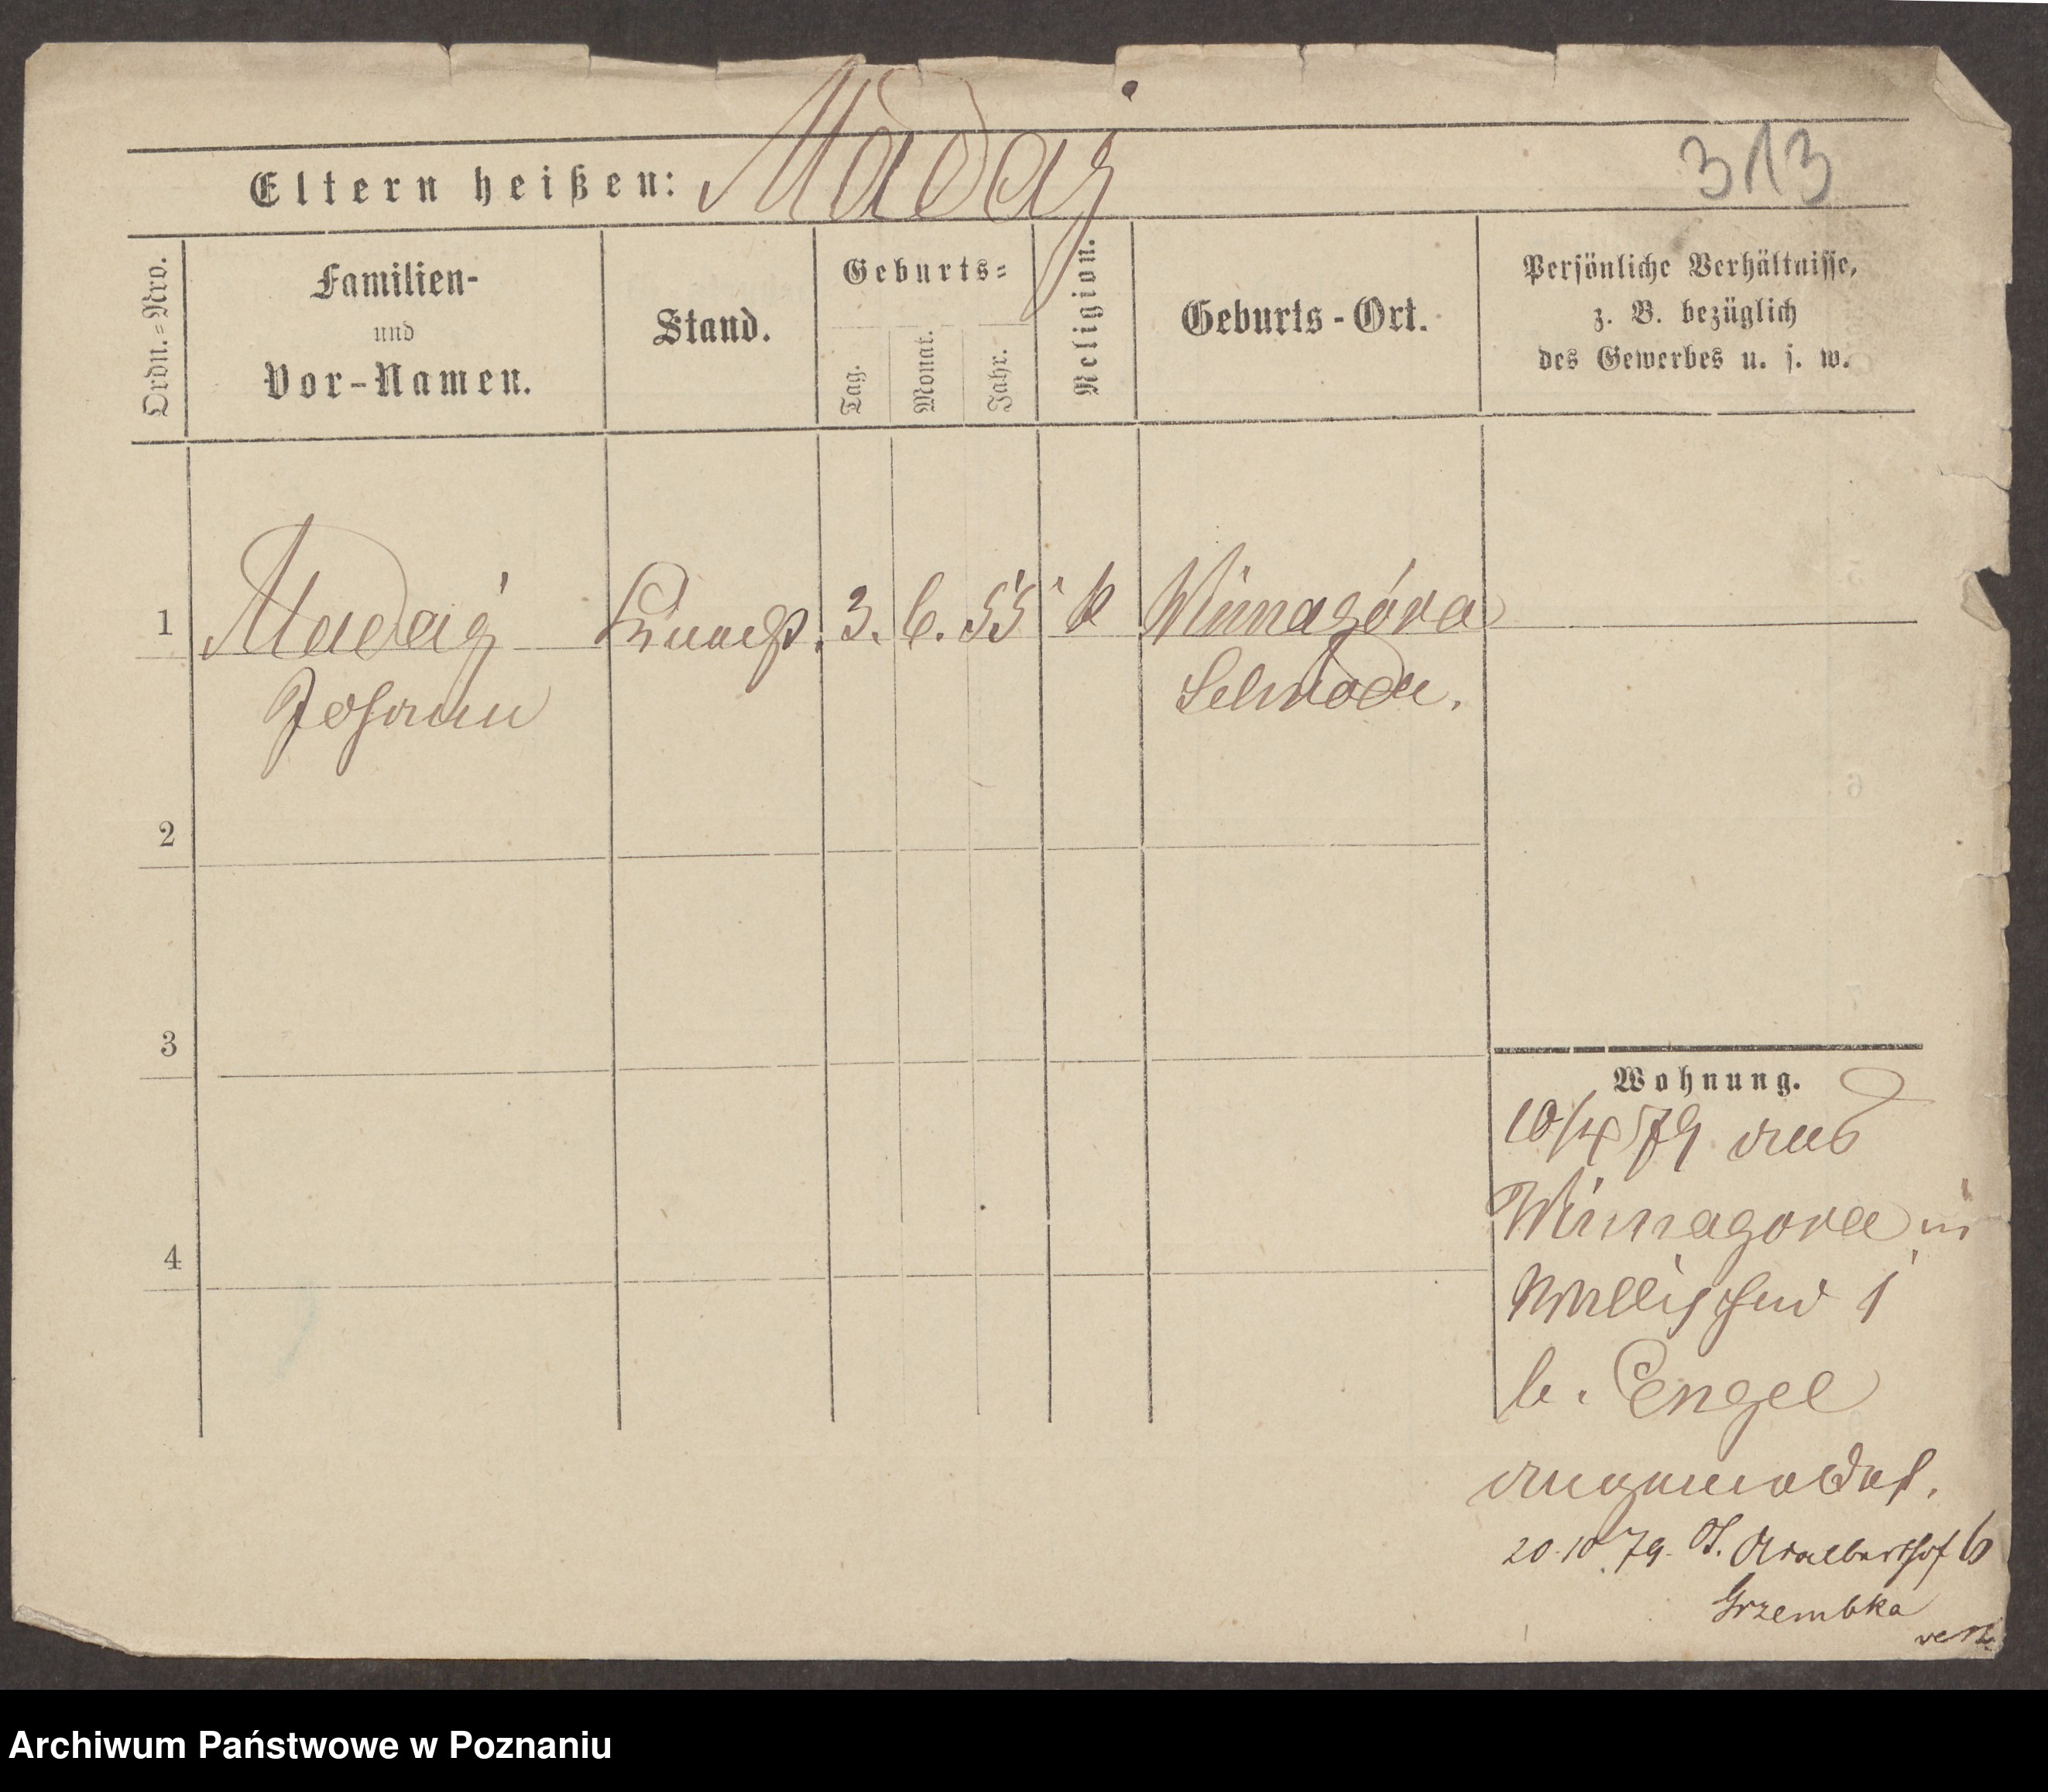 Madaj
313
Eltern heißen:
Ordn.=Nro.
Familien-
und
Vor-Namen.
Stand.
Geburts=
Tag.
Monat.
Jahr.
Religion.
Geburts-Ort.
Persönliche Verhältnisse,
z. B. bezüglich
des Gewerbes u. s. w.
1 Madaj Knecht. 3. 6. 55 k Winnagóra
Johann Schroda.
2
3
4
Wohnung.
10/4 79 aus
Winnagora in
Wallischei 1
b. Engel
angemeldet.
20.10.79. St. Adalberthof 6
Grzembka
verz.
Archiwum Państwowe w Poznaniu